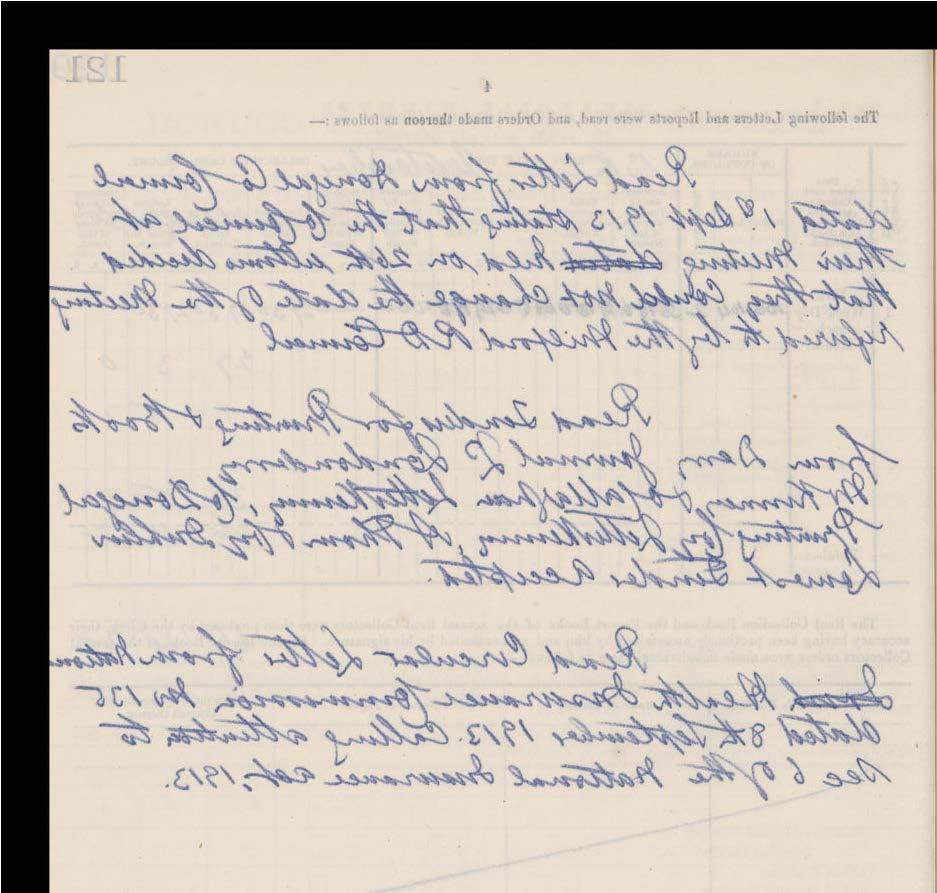 121
4
The following Letters and Reports were read, and Orders made thereon as follows :—
Read Letter from Donegal Co Council
dated 1st Sept 1913 stating that the Co Council at
their Meeting held on 26th ultimo decided
that they could not change the date of the Meeting
referred to by the Milford RD Council
Read Tenders for Printing & Books
from Derry Journal Ld Londonderry
McKinney & O'Callaghan Letterkenny, Co Donegal
Printing Coy Letterkenny, A Thom & Coy Dublin
Lowest Tender accepted.
Read Circular Letter from National
Health Insurance Commission No 135
dated 8th September 1913. Calling attention to
Sec 6 of the National Insurance Act, 1913.